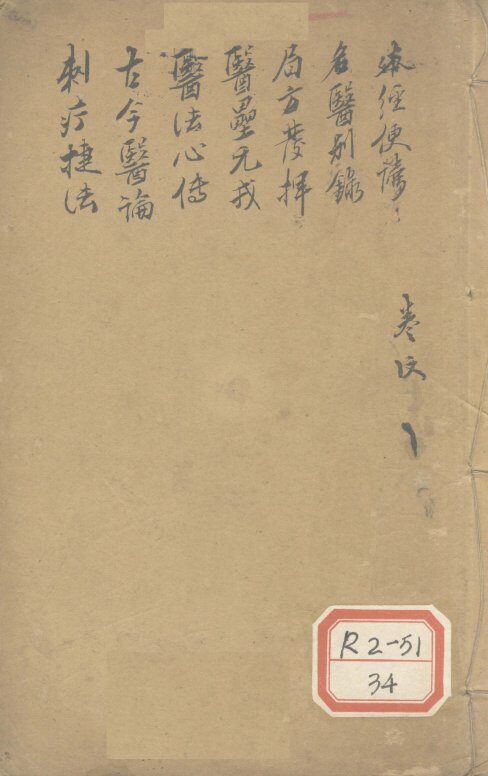 脉經便讀
名醫別錄
局方發揮
醫壘元戎
醫法心傳
古今醫論
刺疔捷法
R2-51
34